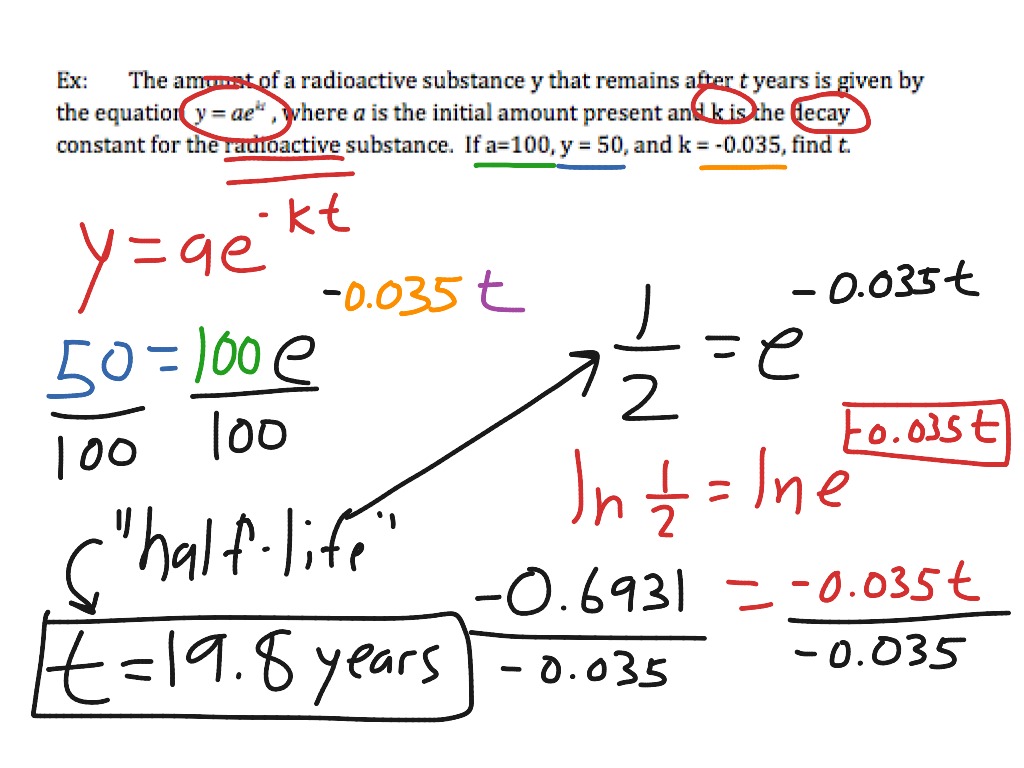 Ex: The amount of a radioactive substance y that remains after t years is given by
the equation y = ae^kt, where a is the initial amount present and k is the decay
constant for the radioactive substance. If a=100, y = 50, and k = -0.035, find t.
y = ae^-kt
50 = 100e^-0.035t
100 100
1/2 = e^-0.035t
ln 1/2 = ln e^-0.035t
"half-life"
-0.6931 = -0.035t
-0.035 -0.035
t = 19.8 years